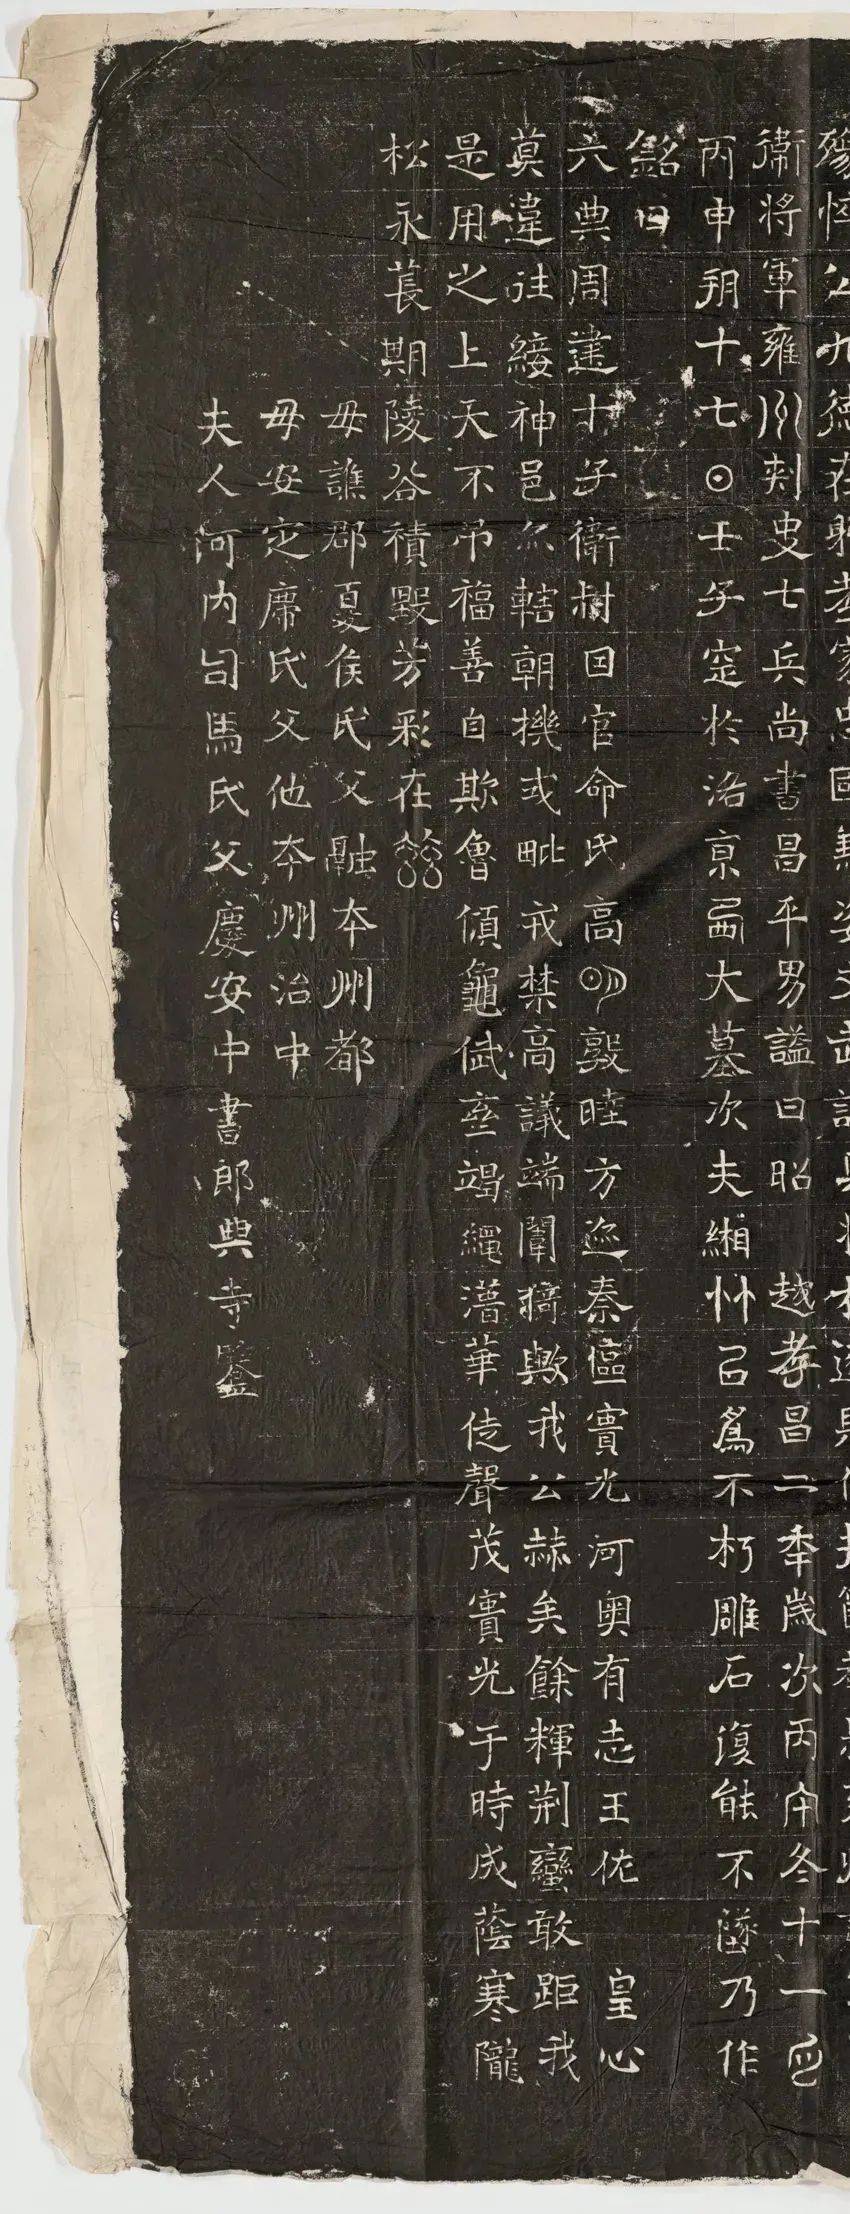 公九德在躬孝家忠國無姿文武
衛將軍雍州刺史七兵尚書昌平男謚曰昭 越孝昌二年歲次丙午冬十一月
丙申朔十七日壬子窆於洛京西大墓次夫緗竹以為不朽雕石復能不墜乃作
銘曰
六典周建十子衛樹因官命氏高明敦睦方延秦區實光河奧有志王佐 皇心
莫違往綏神邑尒轄朝機或毗戎禁高議端闈猗歟我公赫矣餘輝荊蠻敢距我
是用之上天不弔福善自欺魯傾龜坐竭繩灊華徒聲茂實光于時成蔭寒隴
松永萇期陵谷積毀芳彩在茲
母譙郡夏侯氏父融本州都
母安定席氏父他本州治中
夫人河內司馬氏父慶安中書郎典寺鑒